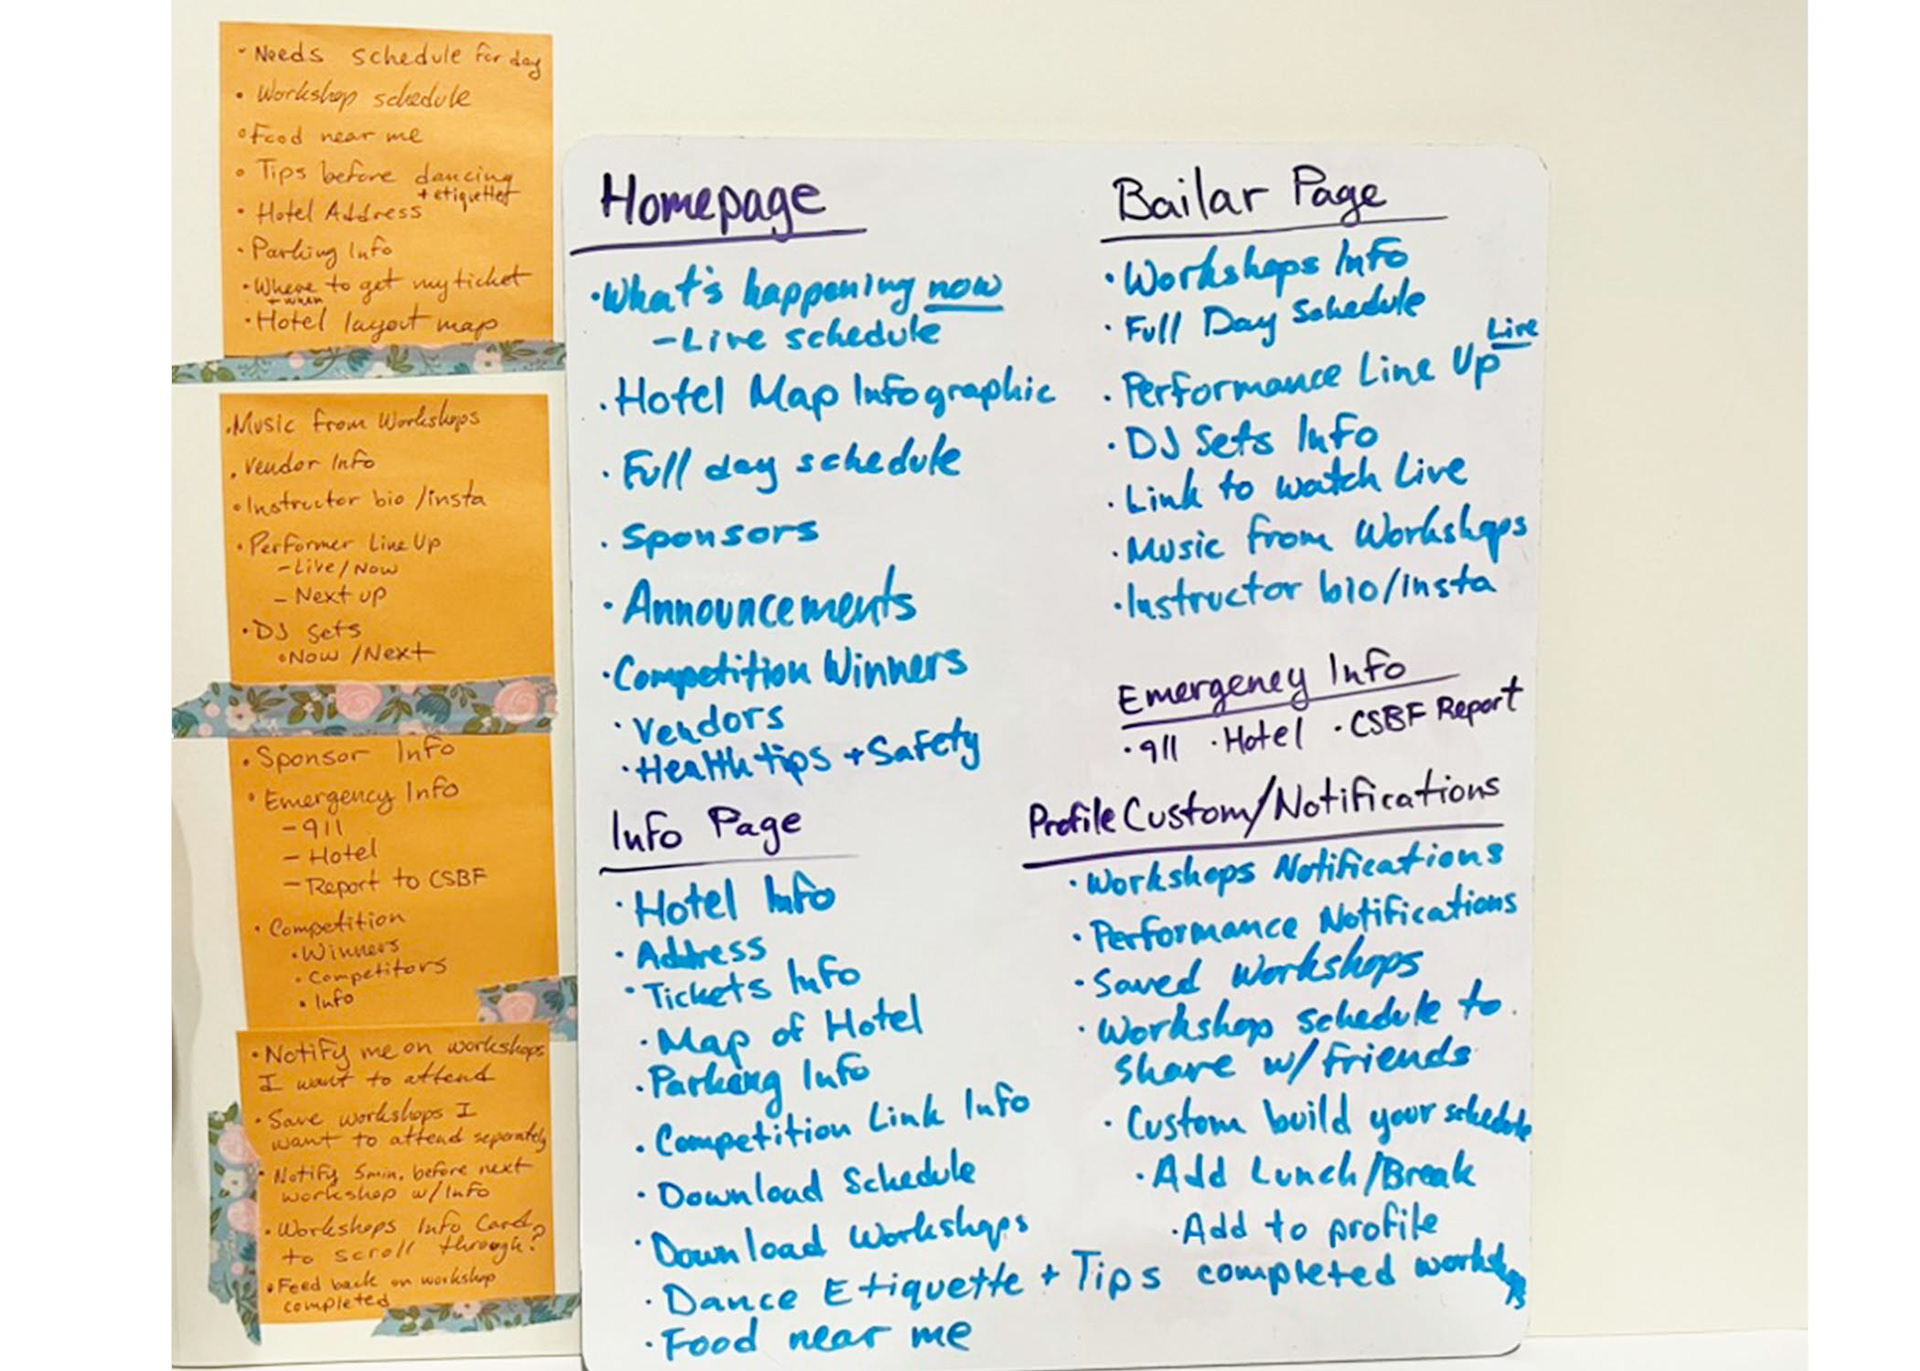 • Needs schedule for day
• Workshop schedule
• Food near me
• Tips before dancing
+ etiquettet
• Hotel Address
• Parking Info
• Where to get my ticket
+ when
• Hotel layout map
• Music from Workshops
• Vendor Info
• Instructor bio /insta
• Performer Line Up
- Live/Now
- Next up
• DJ Sets
• Now /Next
• Sponsor Info
• Emergency Info
- 911
- Hotel
- Report to CSBF
• Competition
• Winners
• Competitors
• Info
• Notify me on workshops
I want to attend
• Save workshops I
want to attend seperately
• Notify 5min. before next
workshop w/Info
• Workshops Info Card?
to scroll through?
• Feed back on workshop
completed
Homepage
• What's happening now
- Live schedule
• Hotel Map Infographic
• Full day schedule
• Sponsors
• Announcements
• Competition Winners
• Vendors
• Health tips + Safety
Info Page
• Hotel Info
• Address
• Tickets Info
• Map of Hotel
• Parking Info
• Competition Link Info
• Download Schedule
• Download Workshops
• Dance Etiquette + Tips
• Food near me
Bailar Page
• Workshops Info
• Full Day Schedule
• Performance Line Up Live
• DJ Sets Info
• Link to watch Live
• Music from Workshops
• Instructor bio/insta
Emergency Info
• 911 • Hotel • CSBF Report
Profile Custom/Notifications
• Workshops Notifications
• Performance Notifications
• Saved Workshops
• Workshop schedule to
share w/ friends
• Custom build your schedule
• Add Lunch/Break
• Add to profile
completed workshops